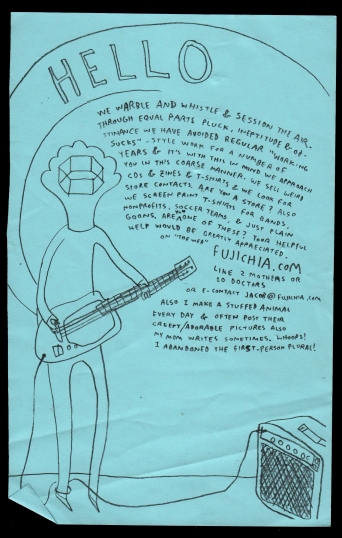 HELLO
WE WARBLE AND WHISTLE & SESSION THE AIR.
THROUGH EQUAL PARTS PLUCK, INEPTITUDE & OB-
STINANCE WE HAVE AVOIDED REGULAR "WORKING
SUCKS"-STYLE WORK FOR A NUMBER OF
YEARS & IT'S WITH THIS IN MIND WE APPROACH
YOU IN THIS COARSE MANNER. WE SELL WEIRD
CDS & ZINES & T-SHIRTS & WE LOOK FOR
STORE CONTACTS. ARE YOU A STORE? ALSO
WE SCREEN PRINT T-SHIRTS FOR BANDS,
NONPROFITS, SOCCER TEAMS, & JUST PLAIN
GOONS. ARE YOU ONE OF THESE? YOUR HELPFUL
HELP WOULD BE GREATLY APPRECIATED.
ON "THE WEB" FUJICHIA.COM
LIKE 2 MOTHERS OR
20 DOCTORS
OR E-CONTACT JACOB@FUJICHIA.COM
ALSO I MAKE A STUFFED ANIMAL
EVERY DAY & OFTEN POST THEIR
CREEPY/ADORABLE PICTURES ALSO
MY MOM WRITES SOMETIMES. WHOOPS!
I ABANDONED THE FIRST-PERSON PLURAL!